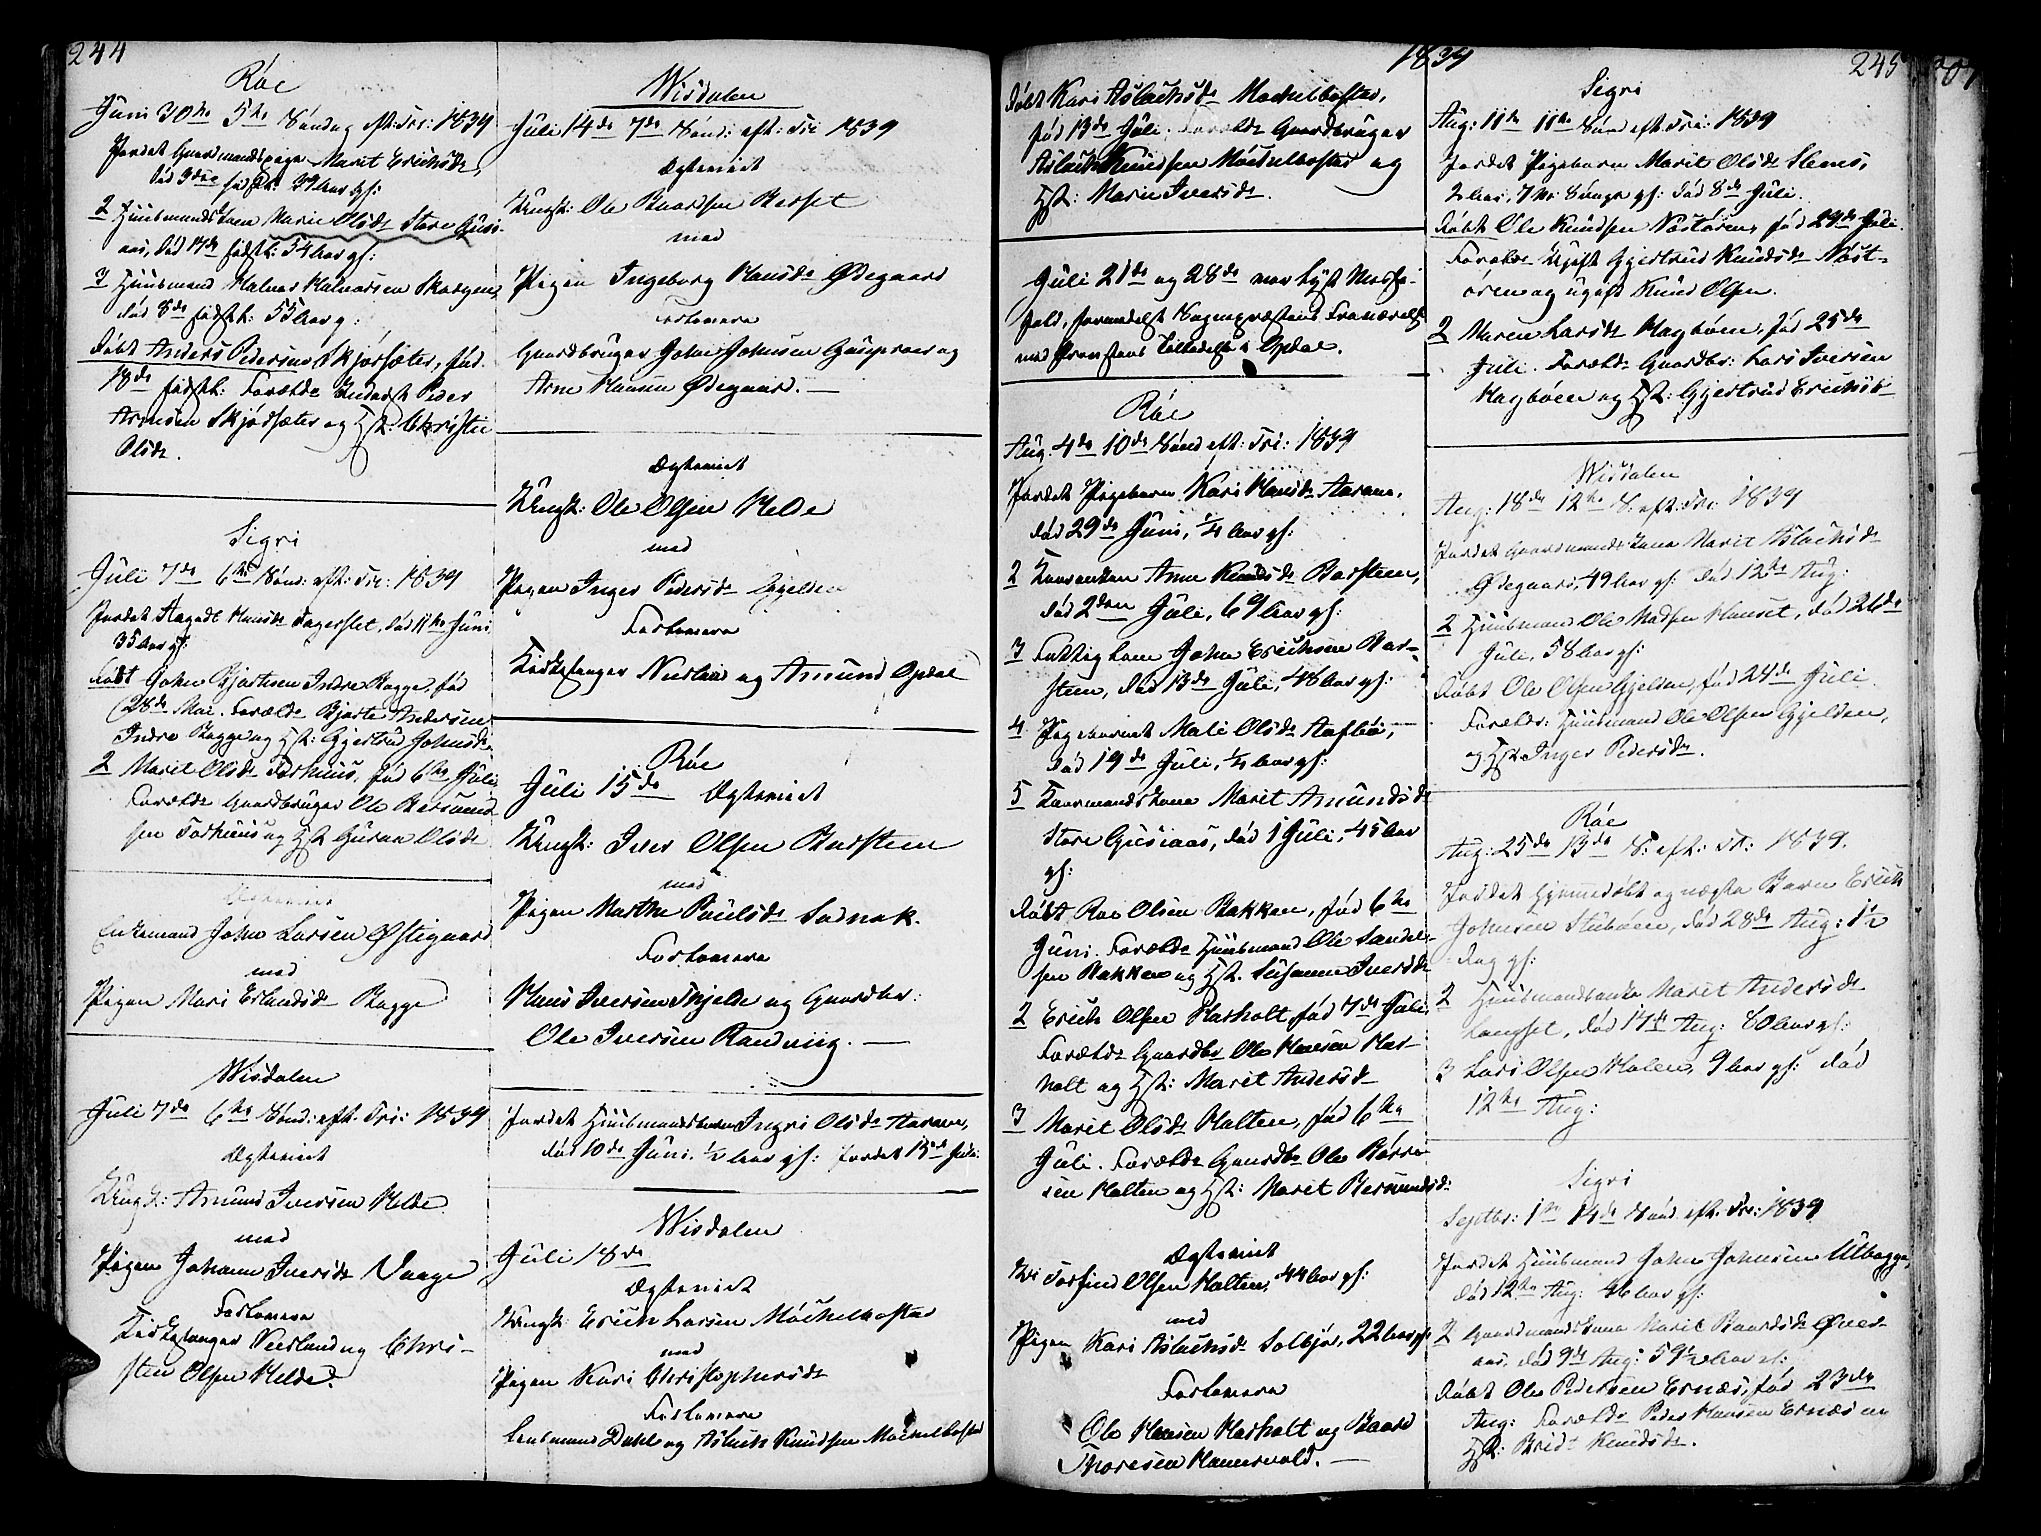 244
Røe
Juni 30te 5te Søndag eft: Tri: 1839
Jordet Gaardmandspige Marit Erichsd:
død 3die 39 Aar gl:
2 Huusmands Kone Marie Olsd: Store Gusi-
aas, død 14de 54 Aar gl:
3 Huusmand Halvor Halvorsen Skaugen,
død 8de 55 Aar g:
Døbt Anders Pedersen Skjørsæter, fød
18de Forældre Inderst Peder
Arensen Skjødsæter og H: Christie
Olsd:.
Sigri
Juli 7de 6te Sønd: eft: Tri: 1839
Jordet Aagadt Hansd: Fagerslet, død 11te Juni
35 Aar gl:
Døbt John Bjertsen Indre Bugge, fød
28de Mai. Foræld: Bjerte Andersen
Indre Bugge og H: Gjertrud Johnsd:
2 Marit Olsd: Torhuus, fød 6te Juli
Foræld: Gaardbruger Ole Bersvend-
sen Torhuus og H: Guran Olsd:
Ægteviet
Enkemand John Larsen Østigaard
med
Pigen Mari Erlandsd: Bugge
Wisdalen
Juli 7de 6te Sønd: eft: Tri: 1839
Ægteviet
Ungk: Amund Iversen Helde
med
Pigen Johanne Iversd: Vaage
Forlovere
Kirkesanger Neerland og Chri-
sten Olsen Helde.
Wisdalen
Juli 14de 7de Sønd: eft: Tri 1839
Ægteviet
Ungk: Ole Baardsen Berset
med
Pigen Ingeborg Hansd: Ødegaard
Forlovere
Gaardbruger John Johnsen og
Arne Hansen Ødegaard.
Ægteviet
Ungk: Ole Olsen Helde
med
Pigen Inger Pedersd: Gjelden
Forlovere
Kirkesanger Neerland og Amund Opdøl
Røe
Juli 15de Ægteviet
Ungk: Iver Olsen Barsteen
med
Pigen Marthe Paulsd: Sødnak.
Forlovere
Hans Iversen Skjelde og Gaardbr:
Ole Iversen Randviig.
Jordet Huusmandsbarn Ingri Olsd: Aaram,
død 10de Juni, 1/2 Aar gl: jordet 15de Juli.
Wisdalen
Juli 18de
Ægteviet
Ungk: Erich Larsen Møckelbostad
med
Pigen Kari Christophersd:
Forlovere
Lensmand Dahl og Aslach Knudsen Møckelbostad
1839
Døbt Kari Aslachsd: Møckelbostad,
fød 13de Juli. Foræld: Gaardbruger
Aslach Knudsen Møckelbostad og
H: Marie Iversd:.
Juli 21de og 28de var lyst Messe-
fald, formedelst Sognepræstens Fraværelse
med Provstens Tilladelse i Opdal.
Røe
Aug: 4de 10de Sønd: eft: Tri: 1839
Jordet Pigebarn Kari Hansd: Aaram,
død 29de Juni, 1/4 Aar gl:
2 Anne Knudsd: Barsteen,
død 2den Juli, 69 Aar gl:
3 Fattiglem John Erichsen Bar-
steen, død 13de Juli, 48 Aar gl:
4 Pigebarnet Mali Olsd: Aasbø,
død 19de Juli, 1/4 Aar gl:
5 Kaarmandskone Marit Amundsd:
Store Gusiaas, død 1 Juli, 45 Aar
gl:
Døbt Roe Olsen Bakken, fød 6te
Juni. Foræld: Huusmand Ole Sande-
sen Bakken og H: Susanne Iversd:
2 Erich Olsen Harholt, fød 7de Juli,
Foræld: Gaardbr Ole Hansen Har-
holt og H: Marit Andersd:
3 Marit Olsd: Holten, fød 6te
Juli. Foræld: Gaardbr Ole Børre-
sen Holten og H: Marit Bersvendsd:
Ægteviet
Torfind Olsen Holten, 44 Aar gl:
med
Pigen Kari Aslachsd: Solbjør, 22 Aar gl:
Forlovere
Ole Hansen Harholt og Baard
Thoresen Hammervold.
245
Sigri
Aug: 11te 11te Sønd eft: Tri: 1839
Jordet Pigebarn Marit Olsd: Stens,
2 Aar, 7 gl: død 8de Juli.
Døbt Ole Knudsen Nøstøren, fød 29de Juli.
Foræld: Ugift Gjertrud Knudsd: Nøst-
øren og ugift Knud Olsen.
2 Maren Larsd: Hagbøen, fød 25de
Juli. Foræld: Gaardbr: Lars Iversen
Hagbøen og H: Gjertrud Erichsd:
Wisdalen
Aug: 18de 12te S: eft: Tri: 1839
Jordet Gaardmands Kone Marit Aslachsd:
Ødegaard, 49 Aar gl: død 12te Aug:
2 Huusmand Ole Madsen Hanset, død 26de
Juli, 58 Aar gl:
Døbt Ole Olsen Gjelden, fød 24de Juli
Foræld: Huusmand Ole Olsen Gjelden,
og H: Inger Pedersd:.
Røe
Aug: 25de 13de S: eft: Tr: 1839.
Jordet hjemmedøbt og ægte Barn Erich
Johnsen Stubøen, død 28de Aug: 1 1/2
Dag gl:
2 Huusmandsenke Marit Andersd:
Langset, død 17de Aug: 80 Aar gl:
3 Lars Olsen Holen, 9 Aar gl: død
12te Aug:
Sigri
Septbr: 1ste 14de Sønd. eft: Tri: 1839
Jordet Huusmand John Johnsen Utbugge,
død 12te Aug: 46 Aar gl:
2 Gaardmands Kone Marit Baardsd: Øver-
aas, død 9de Aug: 59 1/2 Aar gl:
Døbt Ole Pedersen Ernæs, fød 23de
Aug: Foræld: Peder Hansen Ernæs og
H: Brid: Knudsd:.